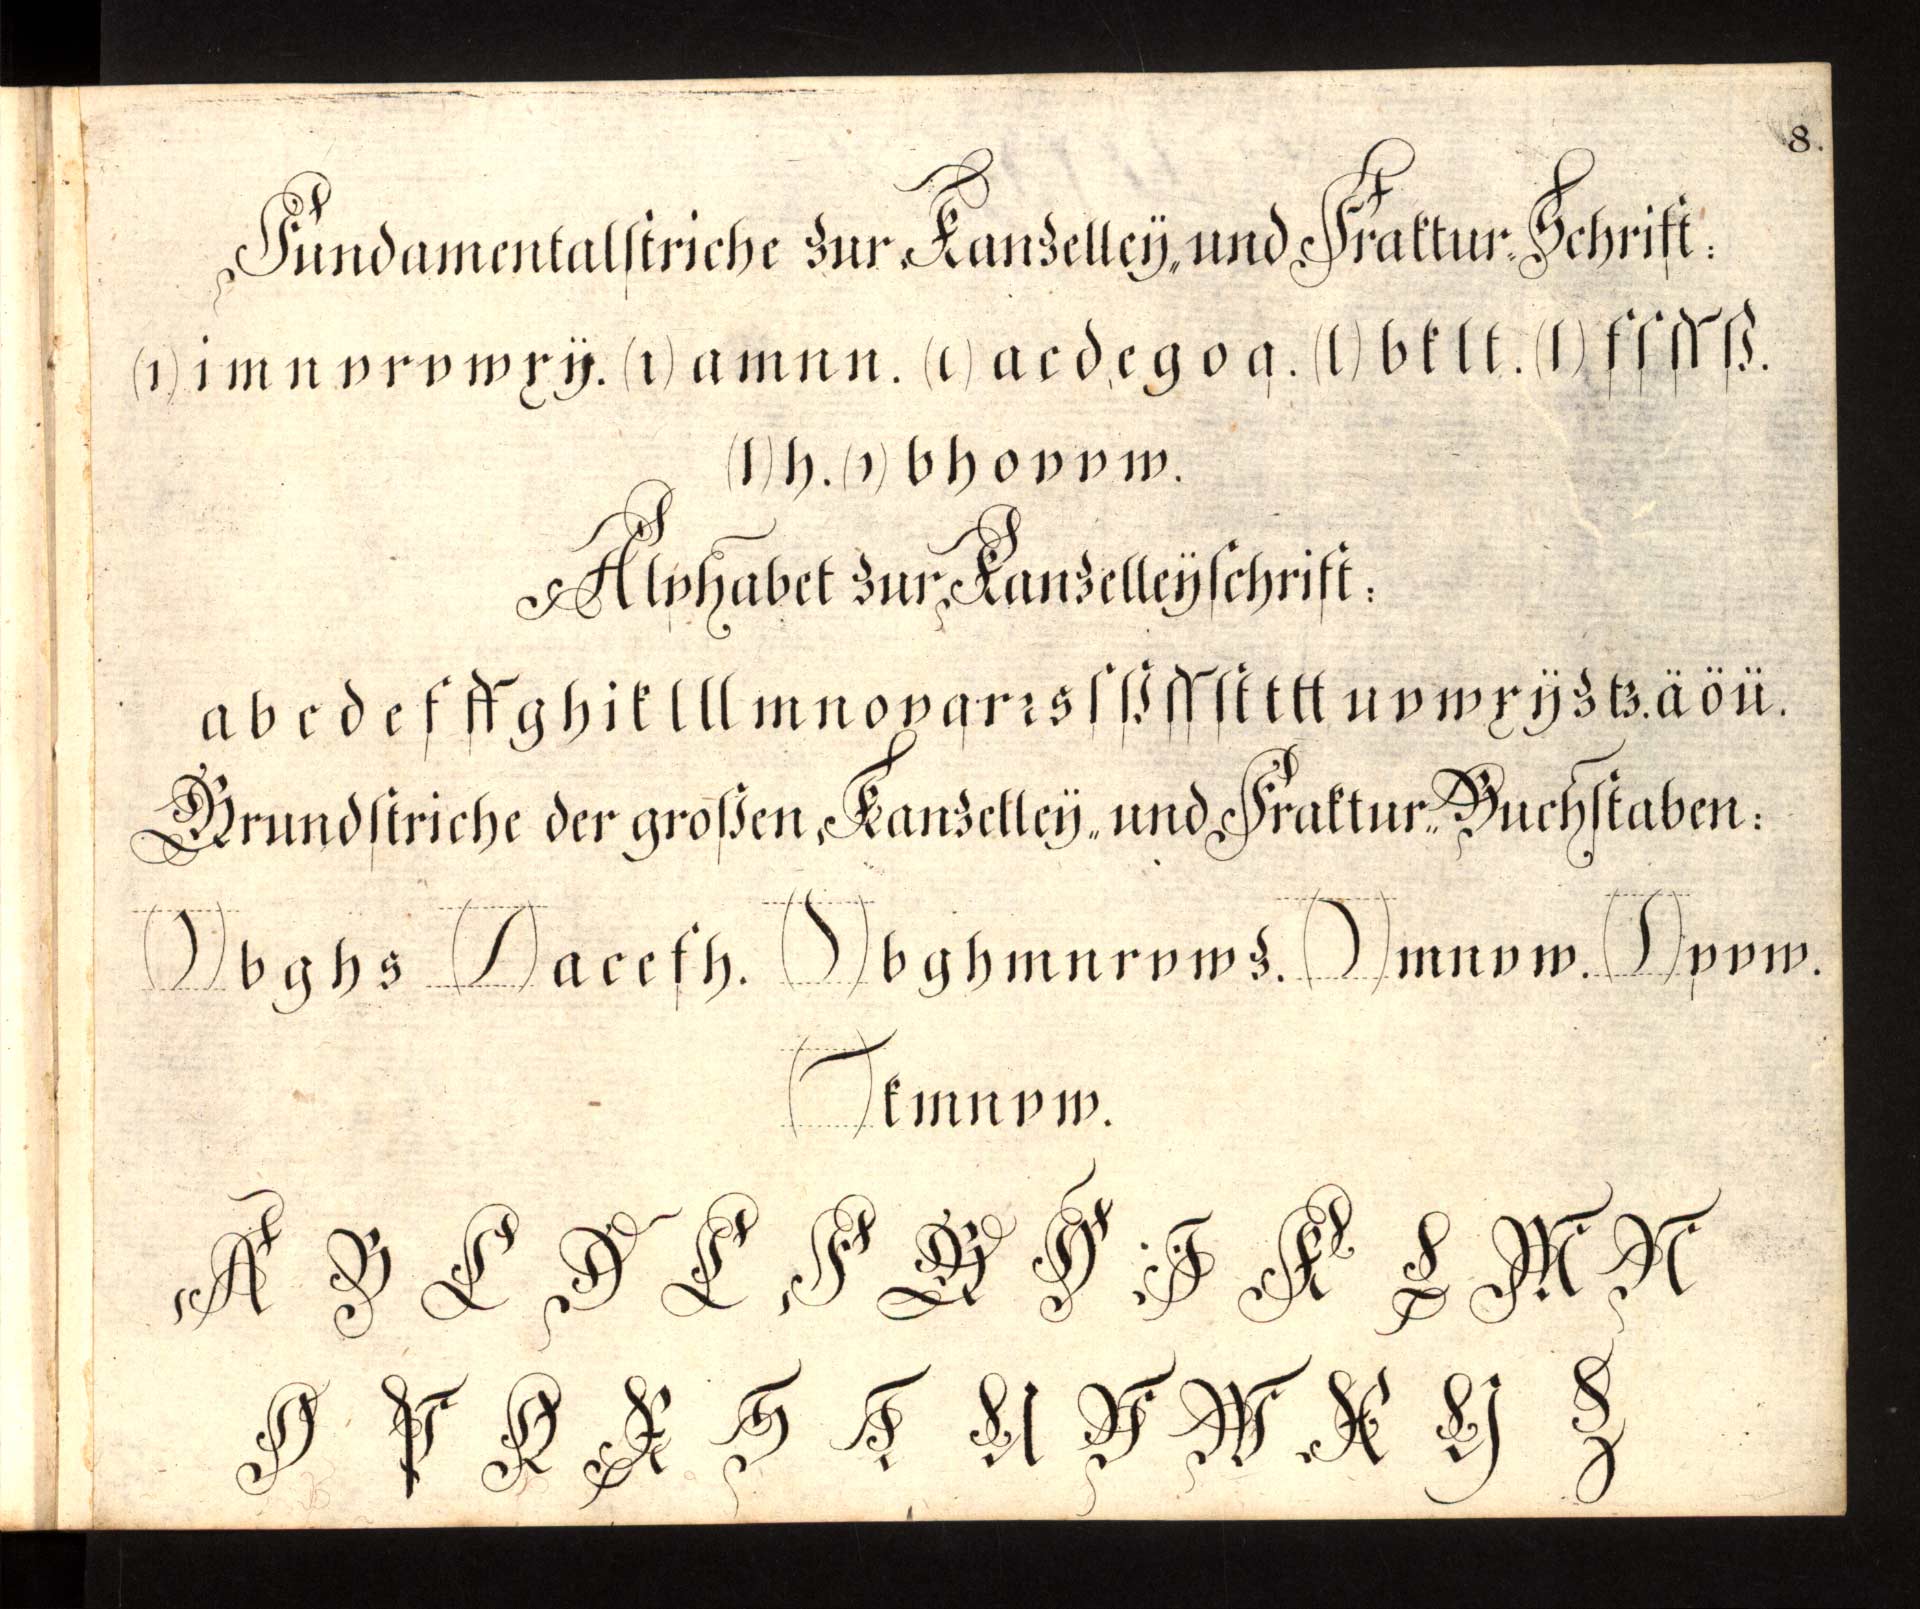 8.
Fundamentalſtriche zur Kanzelleÿ„ und Fraktur„ Schrift:
(ı) i m n v r v w x ÿ. (ı) a m n n. (ı) a c d e g o q. (l) b k l t. (ſ) f ſ ſſ ß.
(l) h. (ı) b h o p v w.
Alphabet zur Kanzelleÿſchrift:
a b c d e f ff g h i k l ll m n o p q r ꝛ s ſ ß ſſ ſt t tt u v w x ÿ z tz. ä ö ü.
Grundſtriche der großen Kanzelleÿ„ und Fraktur„ Buchſtaben:
b g h s a c e f h. b g h m n r v w z. m n v w. p v w.
k m n v w.
A B C D E F G H I K L M N
O P Q R S T U V W X Y Z